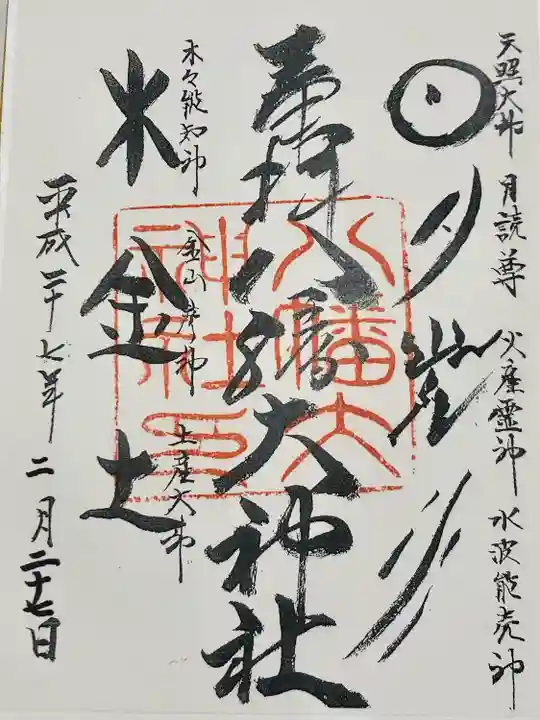 天照大神 月読尊 火産霊神 水波能売神
奉拝 八幡大神社
木々能知神 金山彦神 土産大神
木 金 土
平成二十七年 二月二十七日
八幡大
神社印